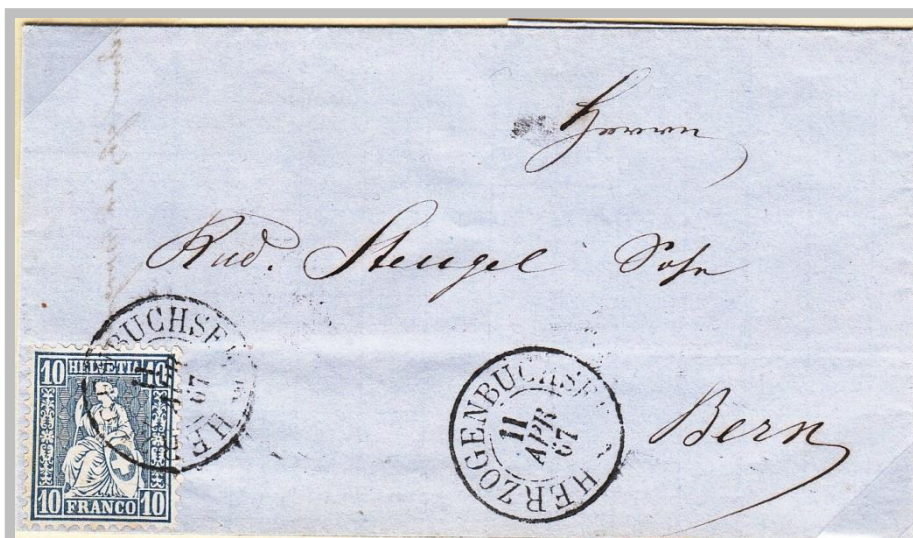 Herrn
Rud. Stengel Sohn
Bern
HERZOGENBUCHSEE
11
APR
67
BUCHSE HER
67
10 HELVETIA 10
10 FRANCO 10